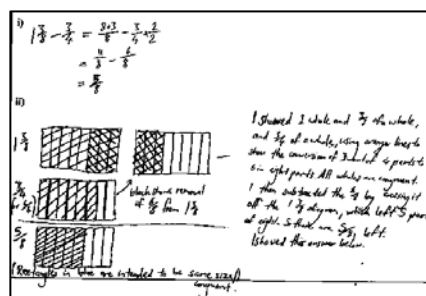 i)
1 3/8 - 3/4 = 8+3/8 - 3/4 × 2/2
= 6/8
= 5/8
ii)
1 3/8
5/8
black shows removal
of 6/8 from 1 3/8
I showed 1 whole and 3/8 of a whole,
and 3/4 of a whole, using orange lines to
show the conversion of 3 out of 4 parts to
6 in eight parts. All wholes are congruent.
I then subtracted the 6/8 by
off the 1 3/8 diagram, which left 5 parts
of eight. So there are 5/8 left.
I showed this answer below.
(Rectangles in blue are intended to be same size/
congruent.